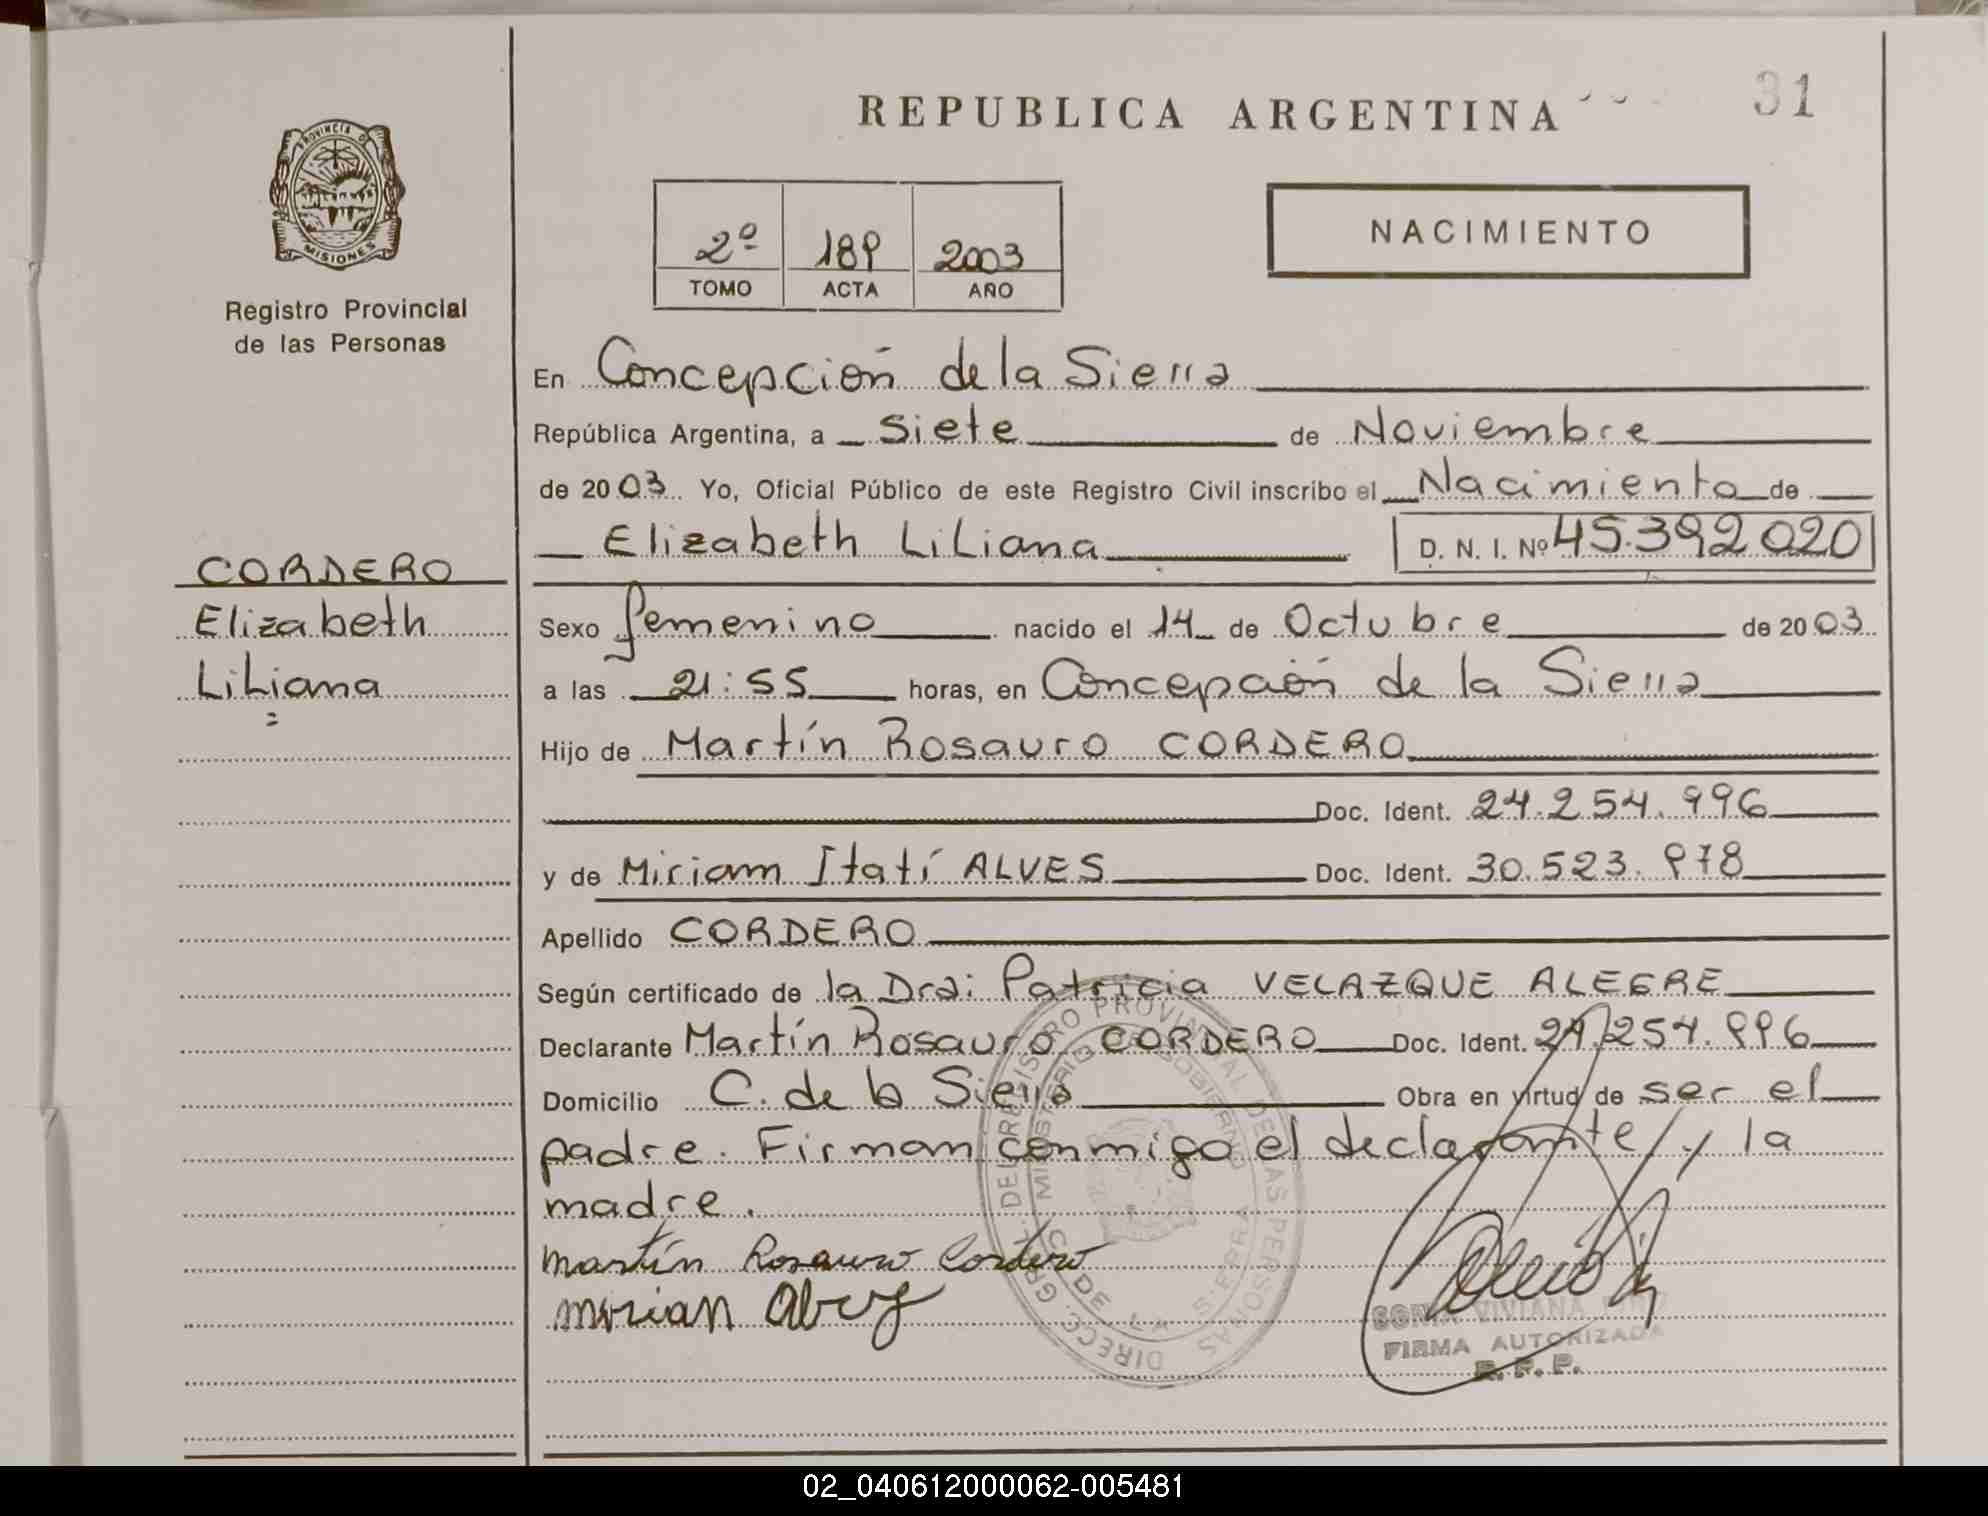 REPUBLICA ARGENTINA
31
PROVINCIA DE
MISIONES
Registro Provincial
de las Personas
2º 189 2003
TOMO ACTA AÑO
NACIMIENTO
En Concepción de la Sierra
República Argentina, a siete de Noviembre
de 2003 Yo, Oficial Público de este Registro Civil inscribo el Nacimiento de
Elizabeth Liliana D. N. I. Nº 45.392020
CORDERO
Elizabeth
Liliana
Sexo femenino nacido el 14 de Octubre de 2003
a las 21:55 horas, en Concepción de la Sierra
Hijo de Martín Rosauro CORDERO
Doc. Ident. 24.254.996
y de Miriam Itatí ALVES Doc. Ident. 30.523.978
Apellido CORDERO
Según certificado de la Dra: Patricia VELAZQUE ALEGRE
Declarante Martín Rosauro CORDERO Doc. Ident. 24.254.996
Domicilio C. de la Sierra Obra en virtud de ser el
padre. Firman conmigo el declarante y la
madre.
Martín Rosauro Cordero
Mirian
DIRECC. GRAL. DEL REGISTRO PROVINCIAL DE LAS PERSONAS
MINISTERIO DE GOBIERNO
C. DE LA SIERRA
SONIA VIVIANA
FIRMA AUTORIZADA
R. P. P.
02_040612000062-005481